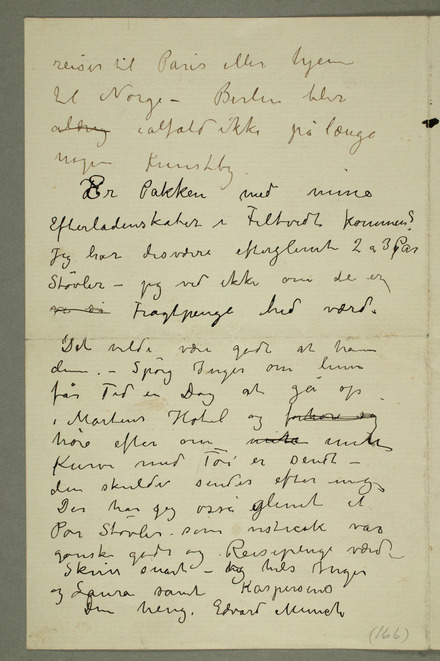 reiser til Paris eller hjem
til Norge – Berlin blir
aldrig ialfald ikke på længe
nogen Kunstby.
Er Pakken med mine
Efterladenskaber i Filtvedt kommen?
Jeg har desværre efterglemt 2 a 3 Par
Støvler – jeg ved ikke om de er
Fragtpenge hed værd.
Det vilde være godt at have
dem. – Spørg Inger om hun
får Tid en Dag at gå op
i Martens Hotel og forhøre sig
høre efter om min
Kurv med Töi er sendt –
den skulde sendes efter mig
Der har jeg også glemt et
Par Støvler som notisk var
ganske gode og Reisepenge værdt
Skriv snart – og hils Inger
og Laura samt
Din heng. Edvard Munch
(166)